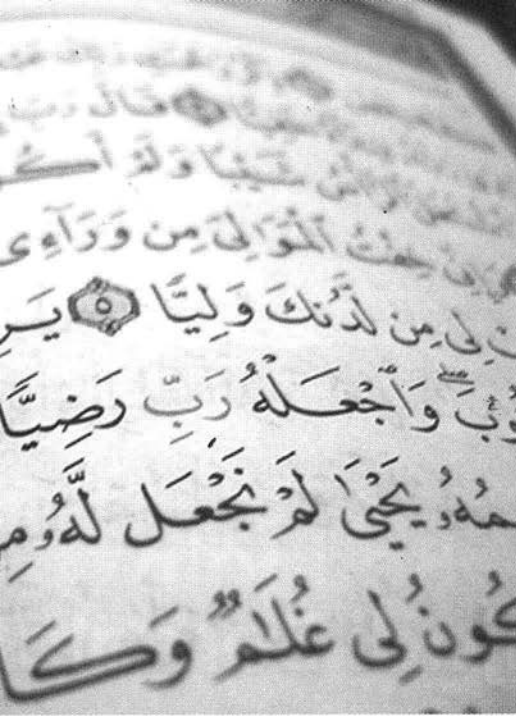 قَالَ رَبِّ
شَيْبًا وَلَمْ أَكُـ
خِفْتُ ٱلْمَوَٰلِىَ مِن وَرَآءِى
لِى مِن لَّدُنكَ وَلِيًّا ٥ يَرِ
ـُوبَ ۖ وَٱجْعَلْهُ رَبِّ رَضِيًّا
ـمُهُۥ يَحْيَىٰ لَمْ نَجْعَل لَّهُۥ مِـ
ـكُونُ لِى غُلَـٰمٌ وَكَا